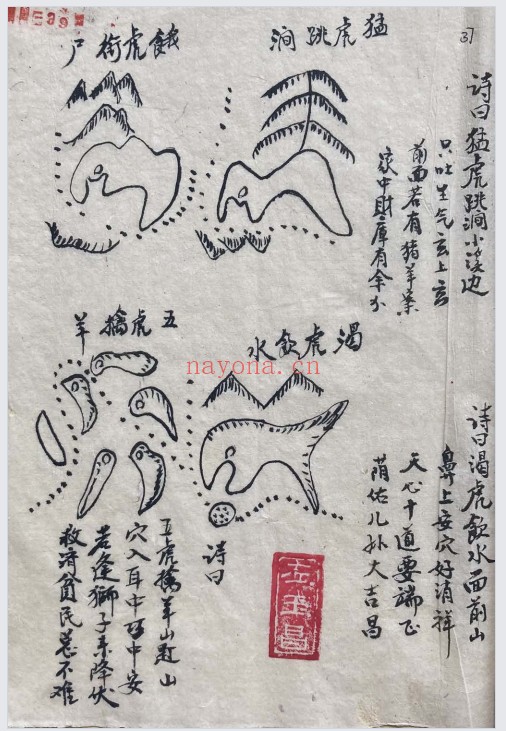 37
诗曰猛虎跳涧小溪边
只吐生气玄上玄
前面若有猪羊案
家中財庫有余分
猛虎跳涧
餓虎銜尸
诗曰渴虎飲水面前山
鼻上安穴好消祥
天心十道要端正
荫佑儿孙大吉昌
渴虎飲水
诗曰
五虎擒羊
五虎擒羊山起山
穴入耳中耳中安
若逢獅子来降伏
救济貧民甚不难
nayona.cn